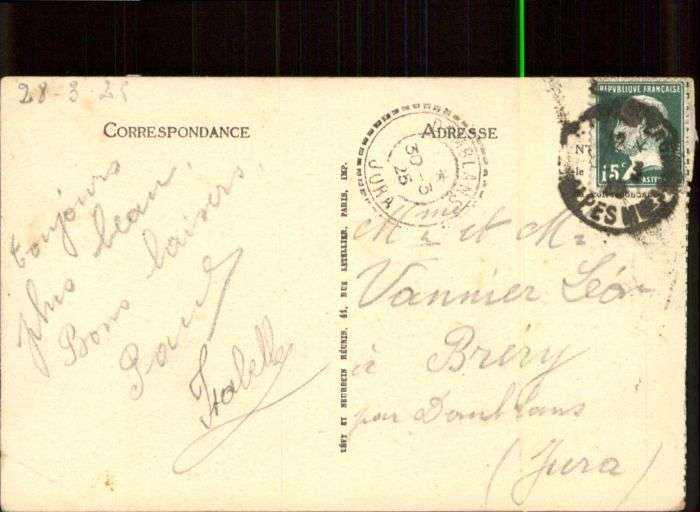 28-3-25
CORRESPONDANCE
toujours
plus beau,
Bons baisers,
Paul
Isabelle
LÉVY ET NEURDEIN RÉUNIS, 44, RUE LETELLIER, PARIS, IMP.
ADRESSE
DOMBLANS
30-3
25
JURA
RÉPUBLIQUE FRANÇAISE
15c
Mr et Mme
Vannier Léon
à Bréry
par Domblans
(Jura)